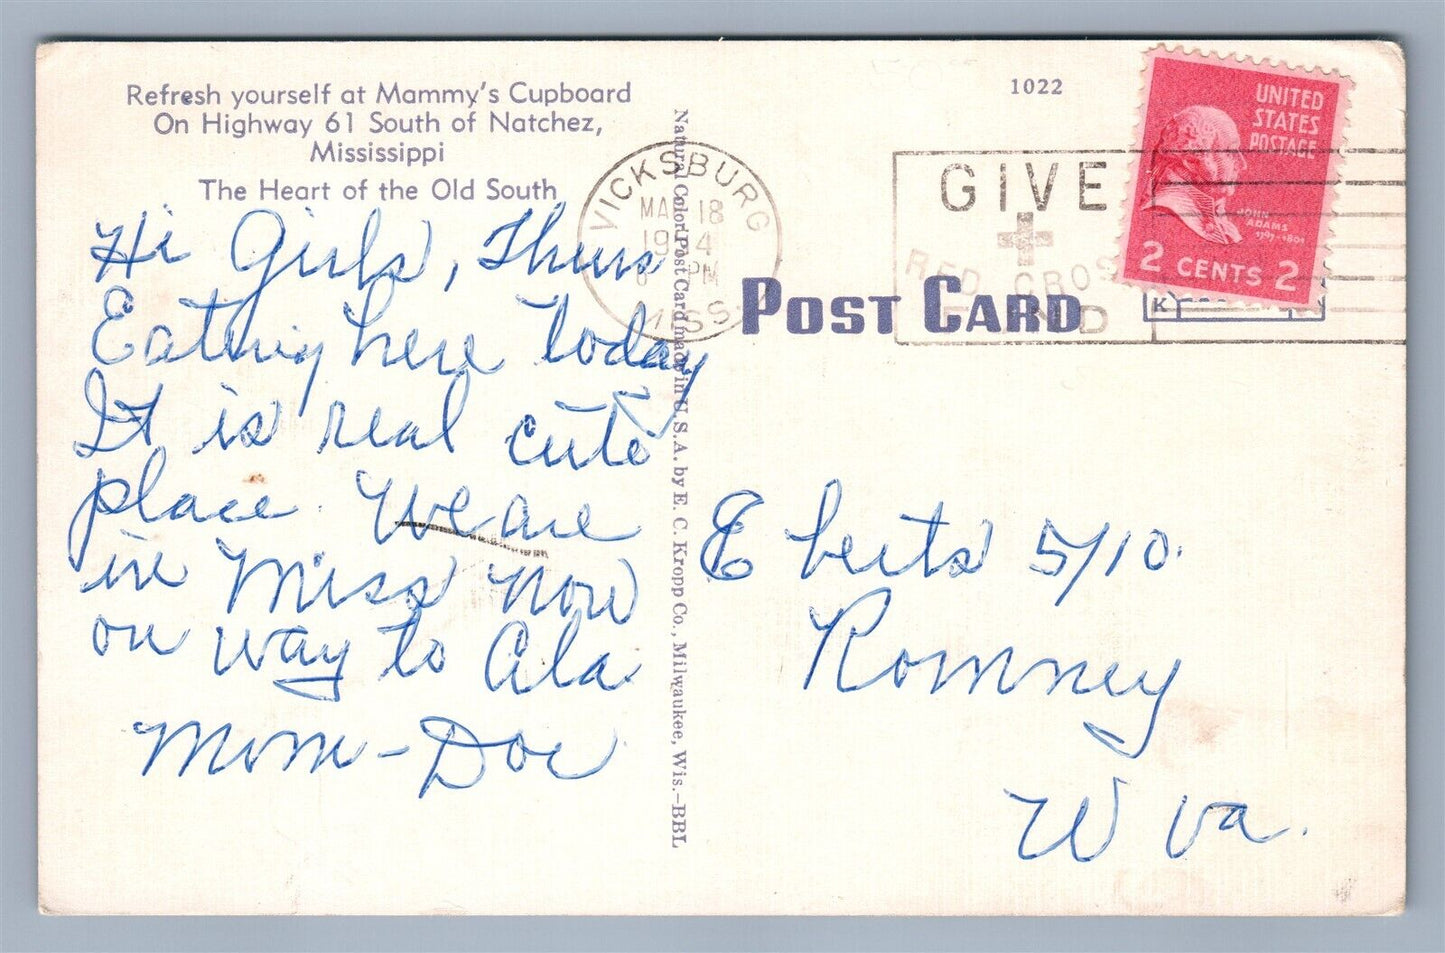 Refresh yourself at Mammy's Cupboard
On Highway 61 South of Natchez,
Mississippi
The Heart of the Old South
Hi Girls, Thurs
Eating here today
It is real cute
place. We are
in Miss now
on way to Ala.
Mom - Doc
Natural Color Post Card made in U.S.A. by E. C. Kropp Co., Milwaukee, Wis.-BBL
VICKSBURG
MAR 18
PM
MISS.
1022
GIVE
RED CROSS
FUND
UNITED
STATES
POSTAGE
JOHN
ADAMS
1797-1801
2 CENTS 2
POST CARD
K
5/10
Romney
W Va.